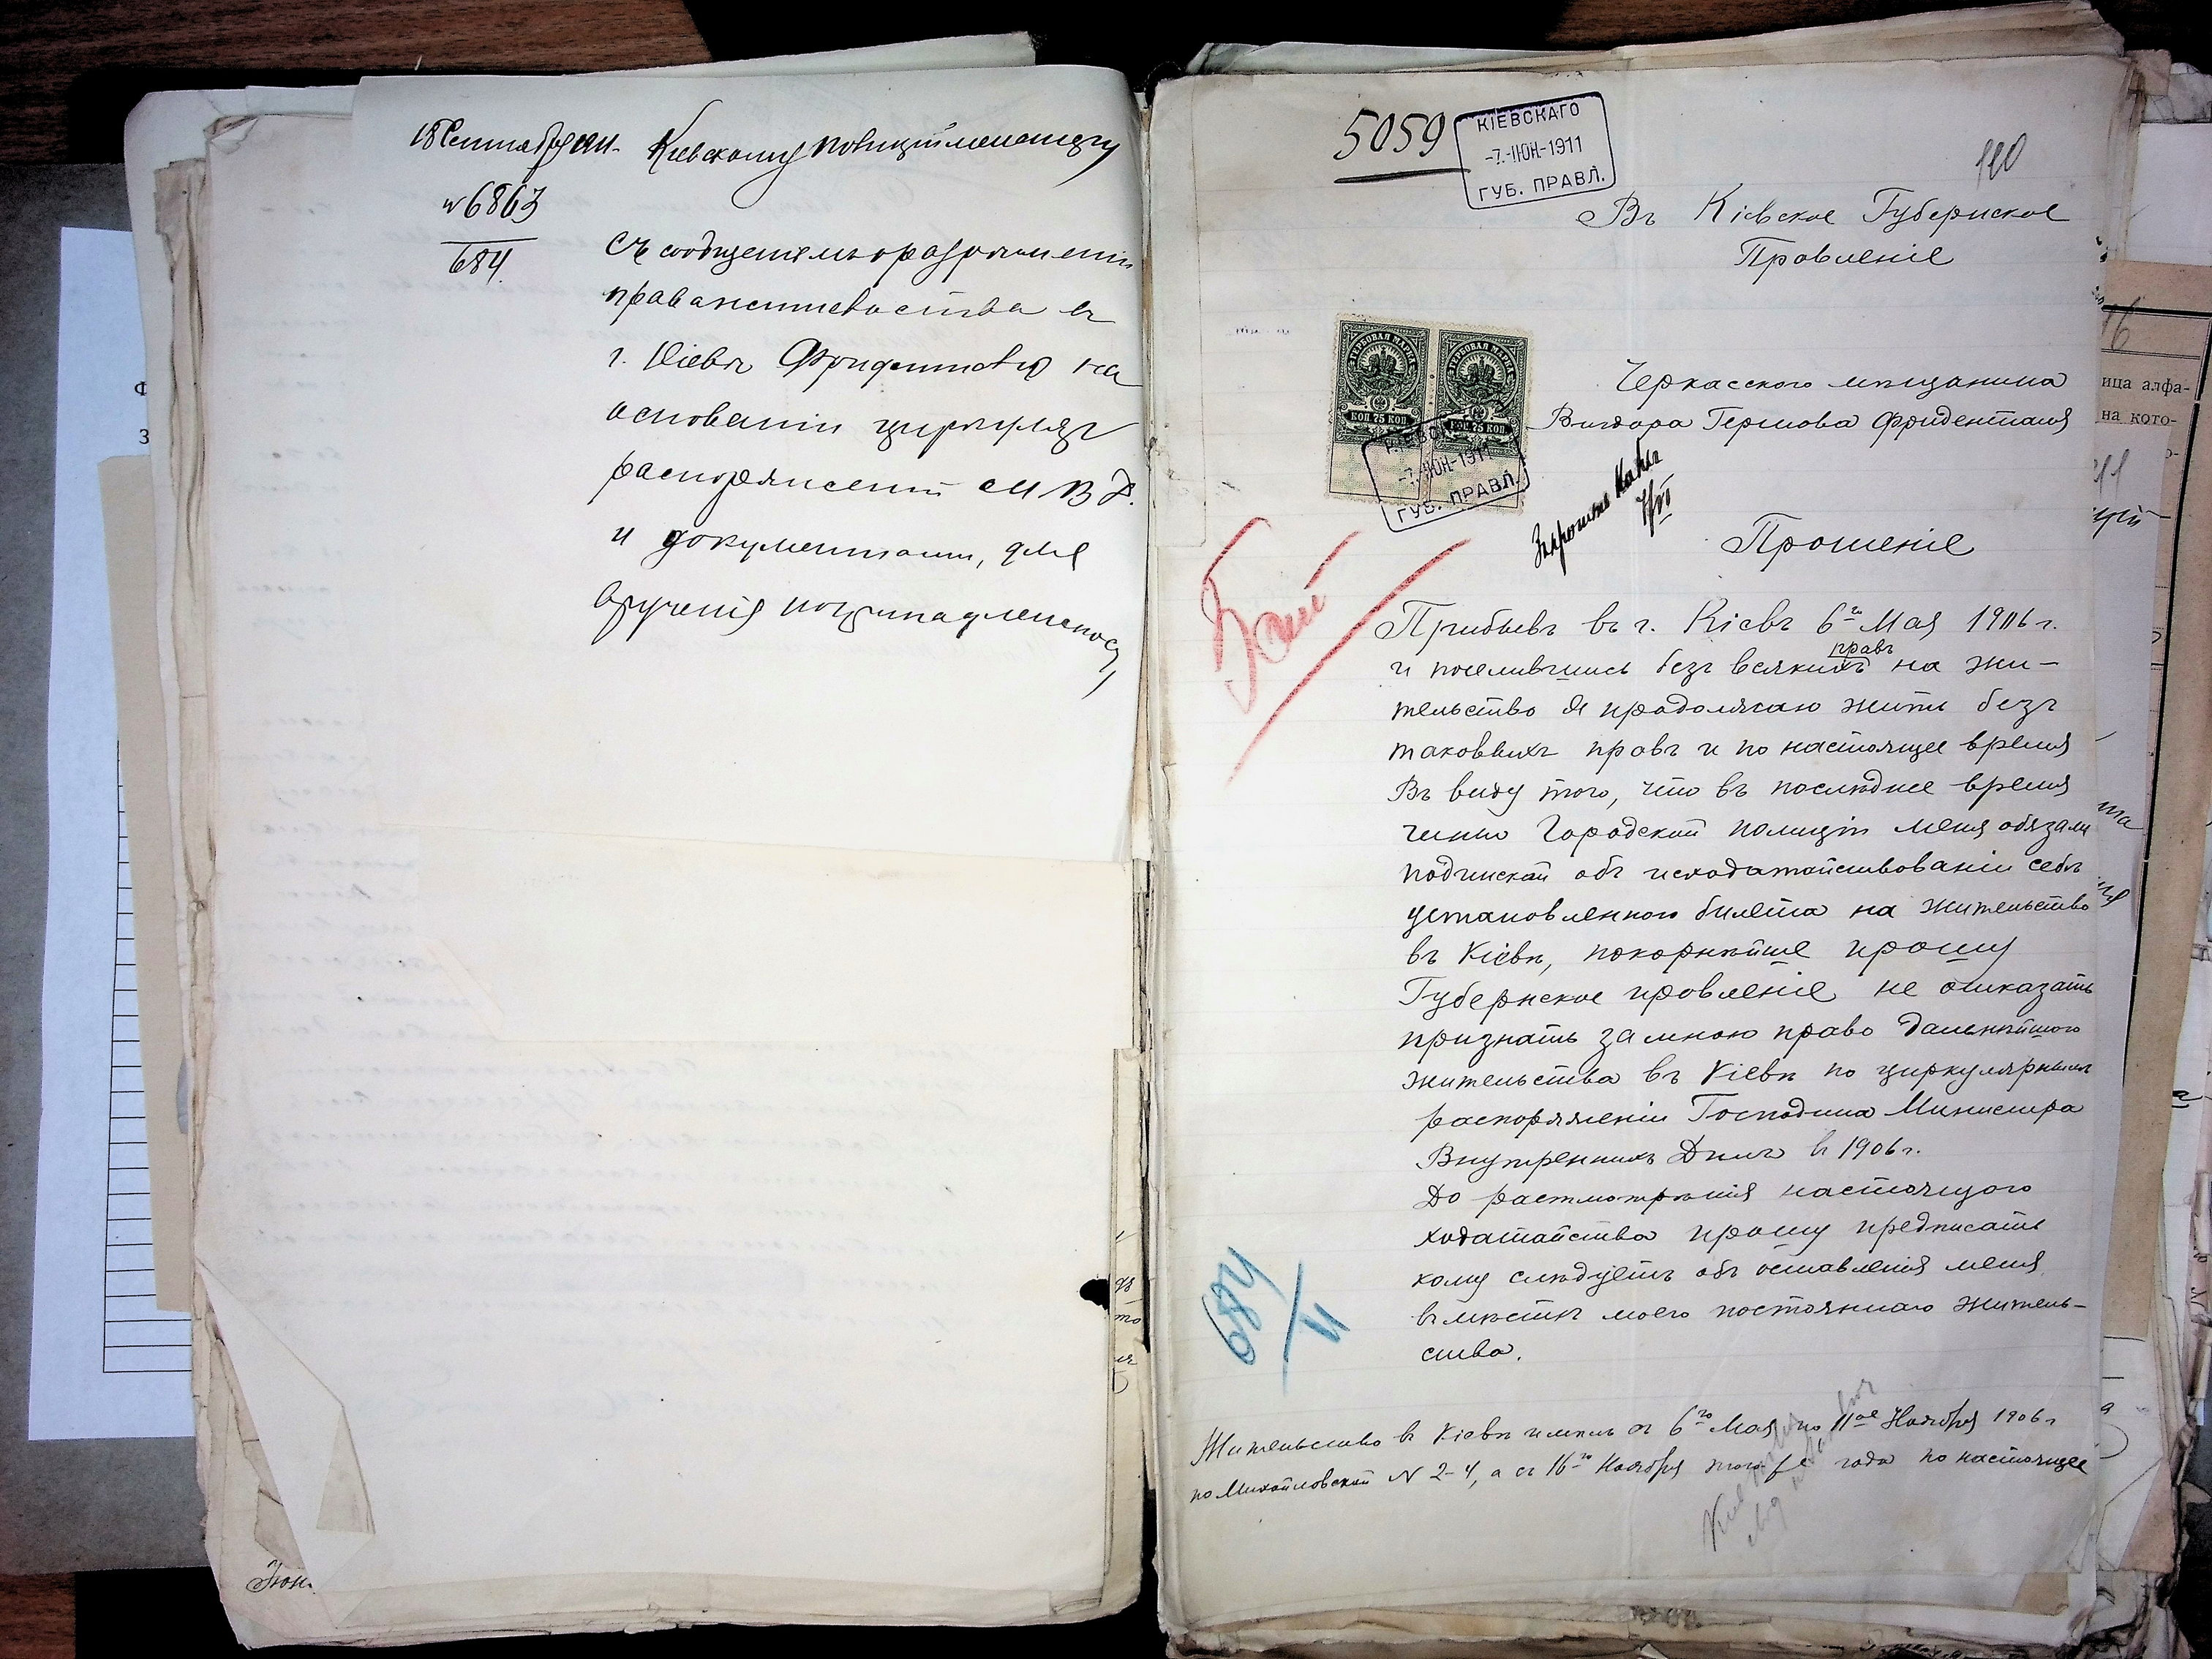 18 Сентября 1911.
№ 6863
684.
Кіевскому полиціймейстеру
Съ сообщеніемъ о разрѣшеніи
права жительства въ
г. Кіевѣ Фриденталю на
основаніи циркуляр
распоряженій М В Д.
и документами, для
врученія по принадлежности
5059
КІЕВСКАГО
-7.-ІЮН.-1911
ГУБ. ПРАВЛ.
120
Въ Кіевское Губернское
Правленіе
ГЕРБОВАЯ МАРКА
КОП 75 КОП
ГЕРБОВАЯ МАРКА
КОП 75 КОП
-7.-ІЮН.-1911
ГУБ. ПРАВЛ.
Черкасского мѣщанина
Вигдора Гершова Фриденталя
7/VI
Прошеніе
Прибывъ въ г. Кіевъ 6го Мая 1906 г.
и поселившись безъ всякихъ правъ на жи-
тельство я продолжаю жить безъ
таковыхъ правъ и по настоящее время
Въ виду того, что въ послѣднее время
чины Городской полиціи меня обязали
подпиской объ исходатайствованіи себѣ
установленного билета на жительство
въ Кіевѣ, покорнѣйше прошу
Губернское правленіе не отказать
признать за мною право дальнѣйшого
жительства въ Кіевѣ по циркулярным
распоряженіи Господина Министра
Внутреннихъ Дѣлъ въ 1906 г.
До расмотрѣнія настоящого
ходатайства прошу предписать
кому слѣдуетъ объ оставленія меня
въ мѣстѣ моего постояннаго житель-
ства.
684/11
Жительство въ Кіевѣ имѣлъ съ 6го Мая по 11ое Ноября 1906 г
по Михайловской № 2-4, а съ 16го Ноября того же года по настоящее
ица алфа-
на кото-